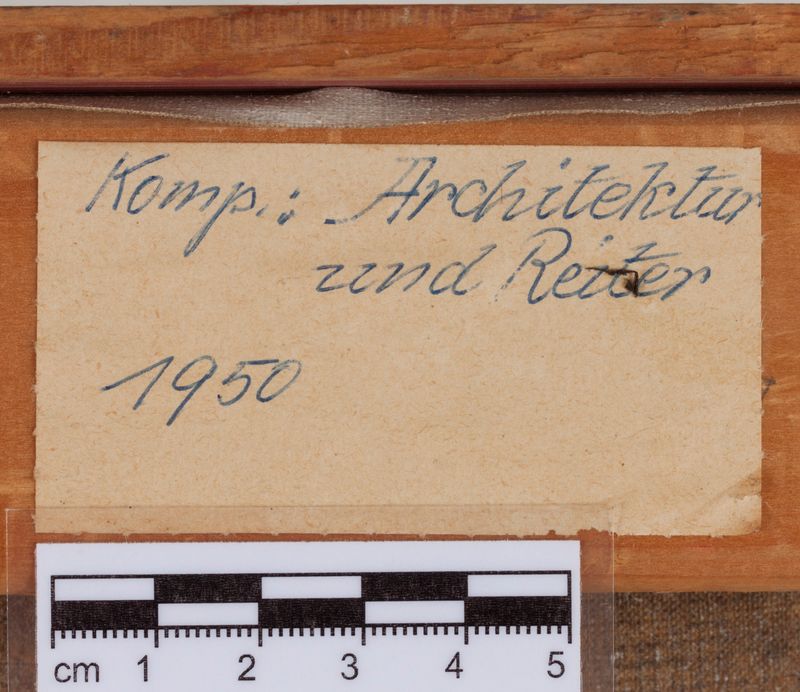 Komp.: Architektur
und Reiter
1950
cm 1 2 3 4 5